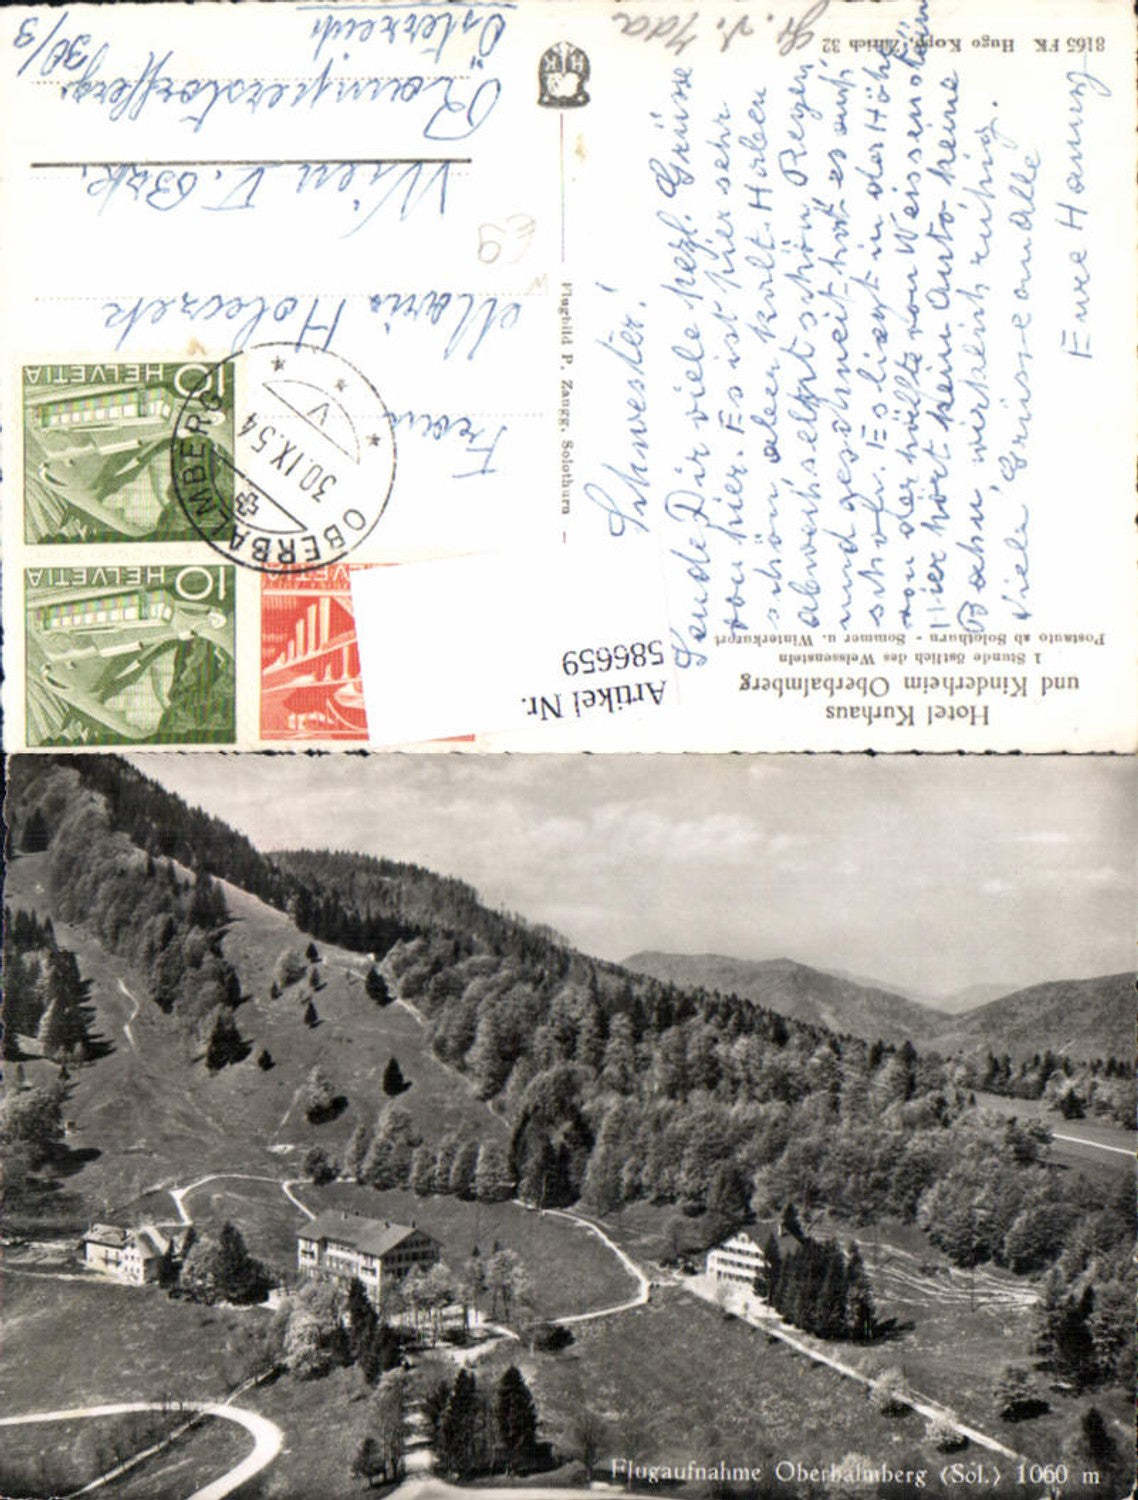 Hotel Kurhaus
und Kinderheim Oberbalmberg
1 Stunde östlich des Weissenstein
Postauto ab Solothurn - Sommer u. Winterkurort
Schwester!
Sende Dir viele herzl. Grüsse
von hier. Es ist hier sehr
schön aber kalt. Haben
abwechselnd schön Regen
und geschneit hat es auch
schon. Es liegt in der Höhe
von der Hälfte von Weissenstein
Hier hört kein Auto keine
Bahn, wirklich ruhig.
Viele Grüsse an alle
Eure Hansy
8165 FK Hugo Kopp, Zürich 32
HK
Flugbild P. Zaugg, Solothurn
Artikel Nr.
586659
HELVETIA
10
HELVETIA
10
HELVETIA
OBERBALMBERG
30.IX.54
V
Frau
Maria Holeczek
Wien V. Bzk.
Rampersdorfferg.
30/3
Österreich
Flugaufnahme Oberbalmberg (Sol.) 1060 m